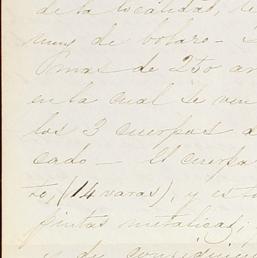 de la localidad, te
muy de bolaro -
Pinias de 250 ar
en la cual se ven
los 3 cuerpos d
cado - El cuerpo
to, (14 varas), y est
pintas metalicas;
y de considicion